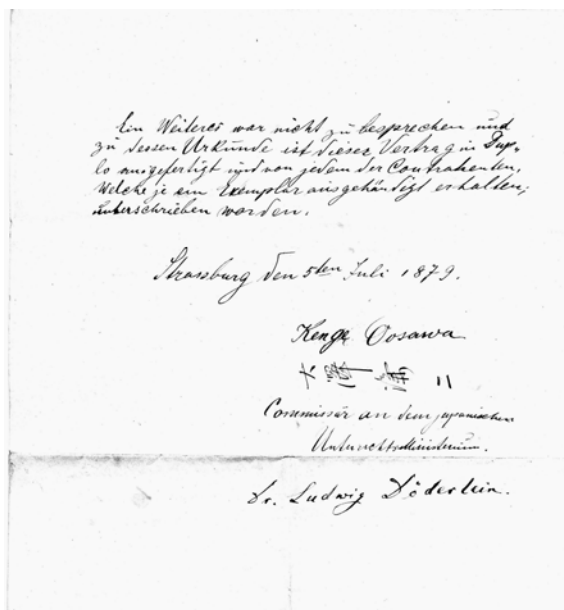 Ein Weiteres war nicht zu besprechen und
zu dessen Urkunde ist dieser Vertrag in Dup-
lo ausgefertigt und von jedem der Contrahenten,
welche je ein Exemplar ausgehändigt erhalten,
unterschrieben worden.
Strassburg den 5ten Juli 1879.
Kenge Oosawa
大澤謙二
Commissär an dem japanischen
Unterrichtsministerium.
Dr. Ludwig Döderlein.